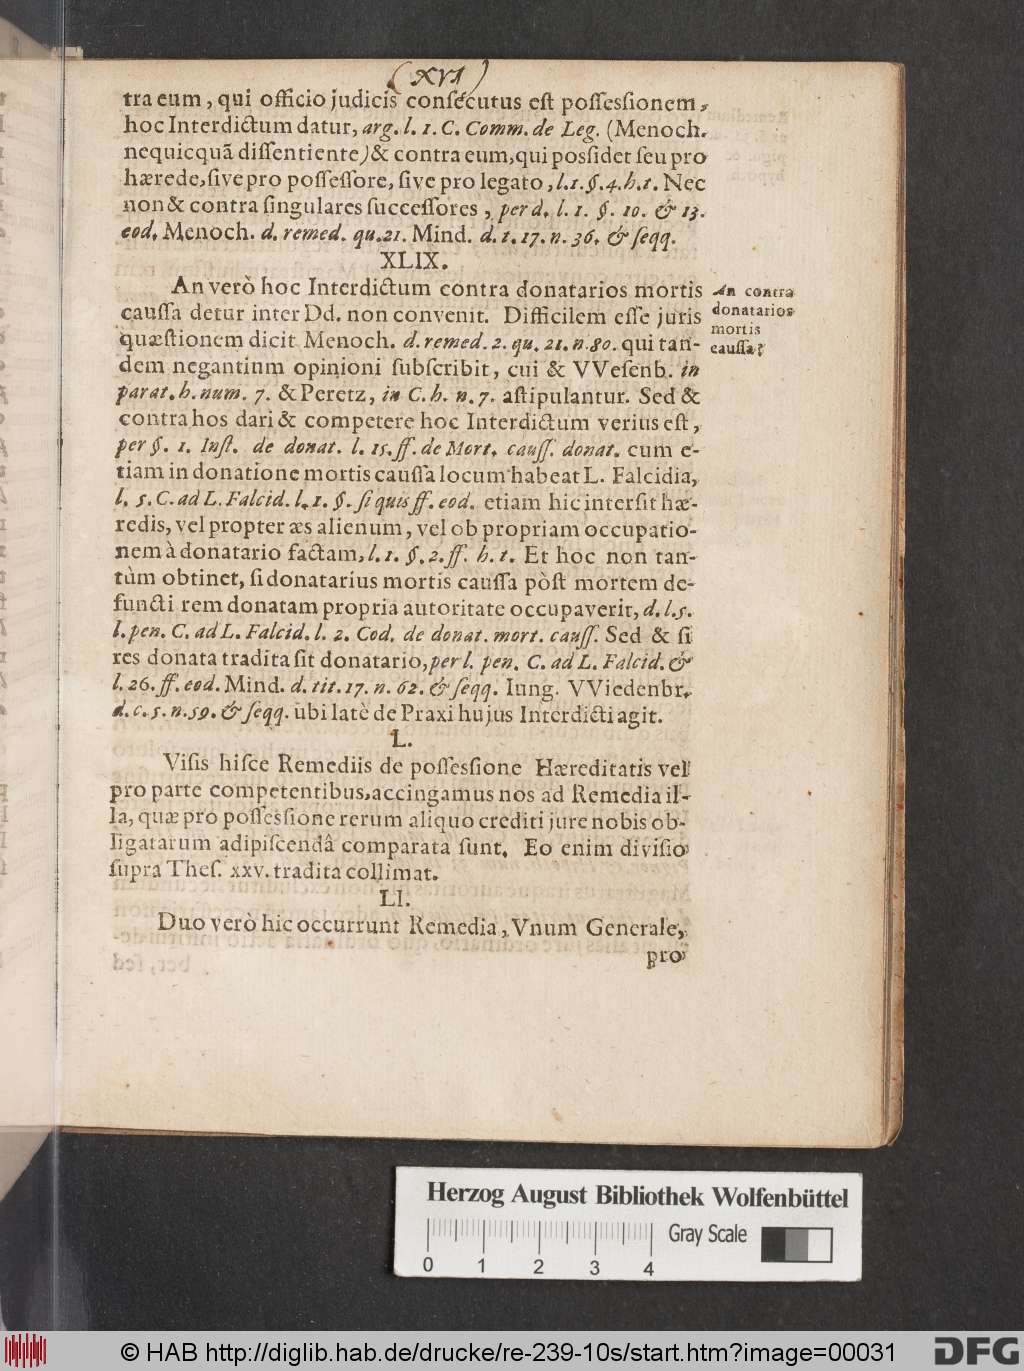 (XVI)
tra eum, qui officio judicis consecutus est possessionem,
hoc Interdictum datur, arg. l. 1. C. Comm. de Leg. (Menoch.
nequicquã dissentiente) & contra eum, qui possidet seu pro
hærede, sive pro possessore, sive pro legato, l. 1. §. 4. h. t. Nec
non & contra singulares successores, per d. l. 1. §. 10. & 13.
eod. Menoch. d. remed. qu. 21. Mind. d. t. 17. n. 36. & seqq.
XLIX.
An verò hoc Interdictum contra donatarios mortis
caussa detur inter Dd. non convenit. Difficilem esse juris
quæstionem dicit Menoch. d. remed. 2. qu. 21. n. 80. qui tan-
dem negantium opinioni subscribit, cui & VVesenb. in
parat. h. num. 7. & Peretz, in C. h. n. 7. astipulantur. Sed &
contra hos dari & competere hoc Interdictum verius est,
per §. 1. Inst. de donat. l. 15. ff. de Mort. causs. donat. cum e-
tiam in donatione mortis caussa locum habeat L. Falcidia,
l. 5. C. ad L. Falcid. l. 1. §. si quis ff. eod. etiam hic intersit hæ-
redis, vel propter æs alienum, vel ob propriam occupatio-
nem à donatario factam, l. 1. §. 2. ff. h. t. Et hoc non tan-
tùm obtinet, si donatarius mortis caussa pòst mortem de-
functi rem donatam propria autoritate occupaverit, d. l. 5.
l. pen. C. ad L. Falcid. l. 2. Cod. de donat. mort. causs. Sed & si
res donata tradita sit donatario, per l. pen. C. ad L. Falcid. &
l. 26. ff. eod. Mind. d. tit. 17. n. 62. & seqq. Iung. VViedenbr.
d. c. 5. n. 59. & seqq. ubi latè de Praxi hujus Interdicti agit.
An contra
donatarios
mortis
caussa?
L.
Visis hisce Remediis de possessione Hæreditatis vel
pro parte competentibus, accingamus nos ad Remedia il-
la, quæ pro possessione rerum aliquo crediti jure nobis ob-
ligatarum adipiscendâ comparata sunt. Eo enim divisio
supra Thes. xxv. tradita collimat.
LI.
Duo verò hic occurrunt Remedia, Vnum Generale,
pro
Herzog August Bibliothek Wolfenbüttel
Gray Scale
0 1 2 3 4
© HAB http://diglib.hab.de/drucke/re-239-10s/start.htm?image=00031
DFG